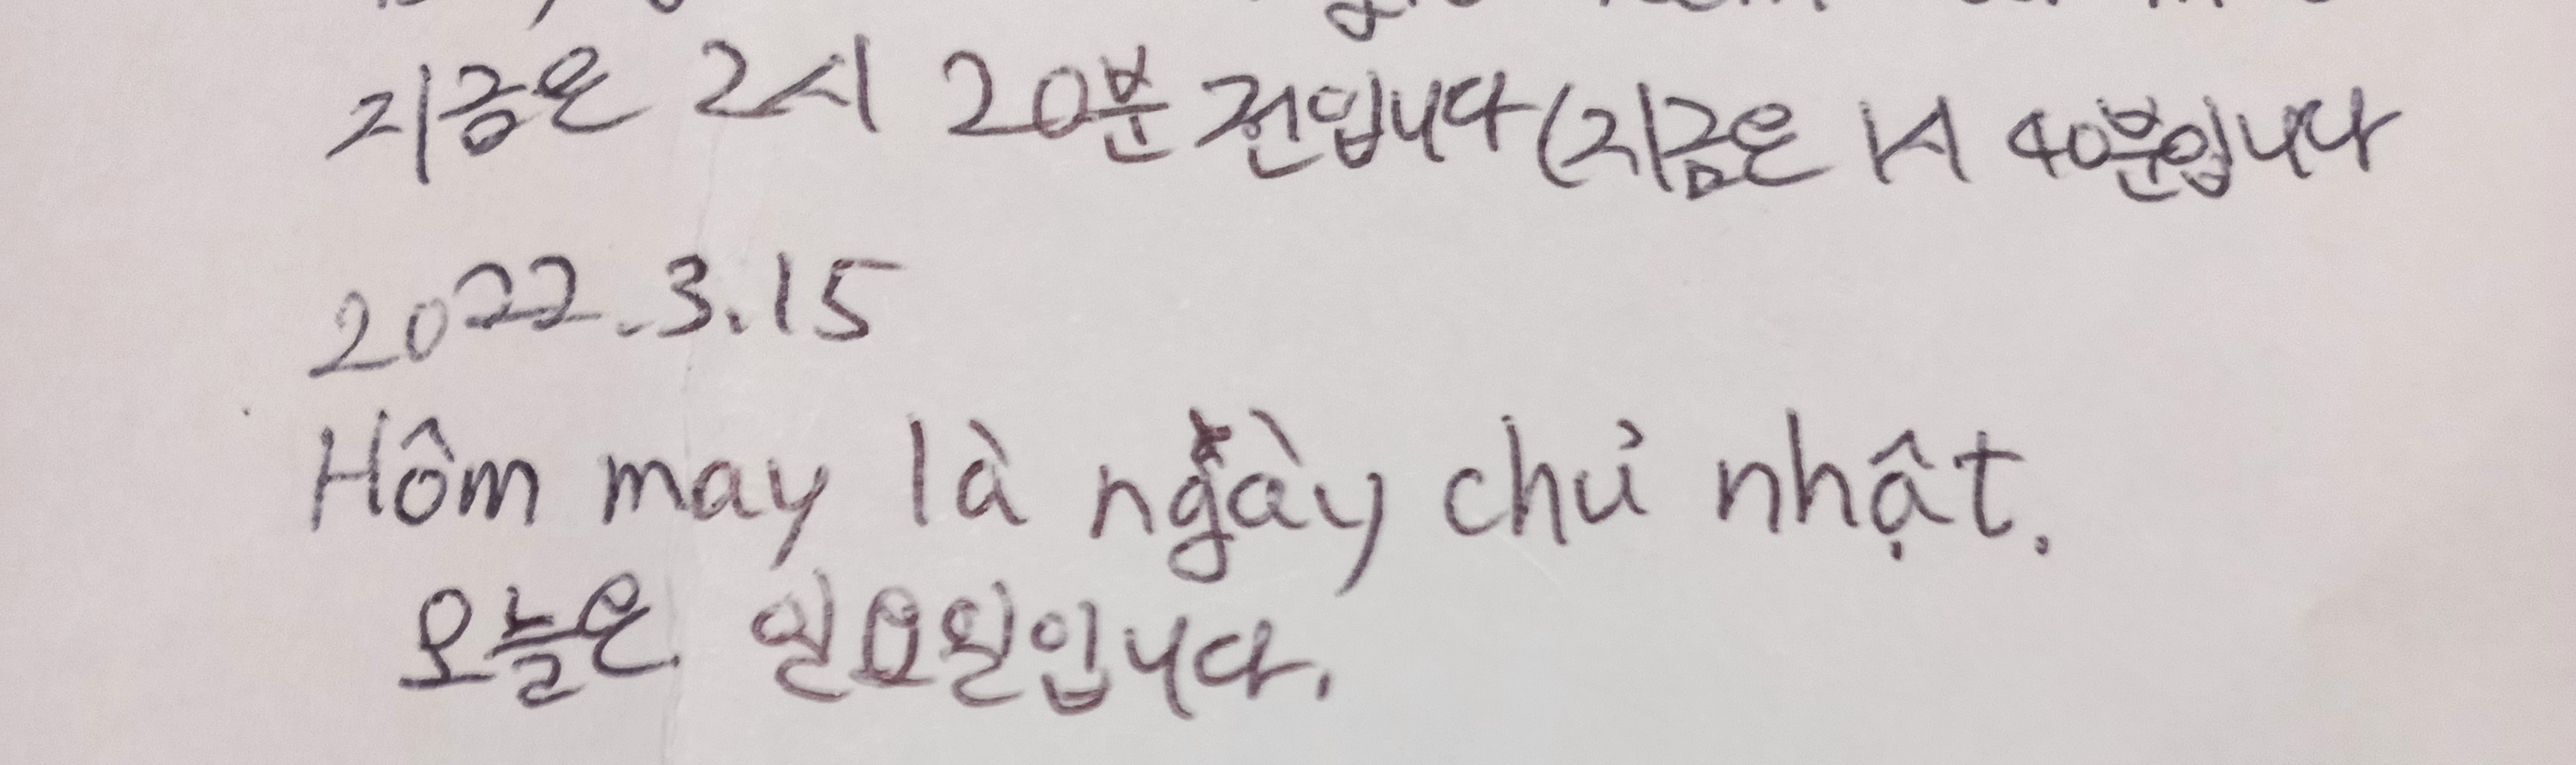 지금은 2시 20분 전입니다 (지금은 1시 40분입니다
2022.3.15
Hôm may là ngày chủ nhật.
오늘은 일요일입니다.